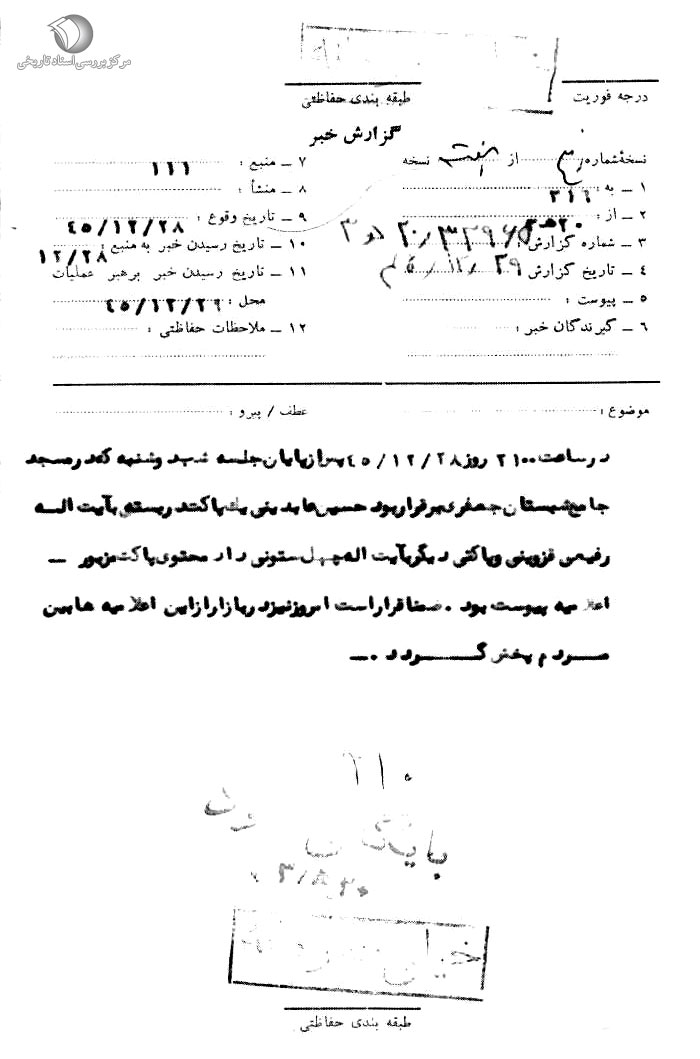 مرکز بررسی اسناد تاریخی
طبقه بندی حفاظتی
درجه فوریت
گزارش خبر
نسخهٔ شماره از هفت نسخه
۱ ــ به : ۳۱۶
۲ ــ از : ۲۰ هـ ۳
۳ ــ شماره گزارش :
۴ ــ تاریخ گزارش
۵ ــ پیوست :
۶ ــ گیرندگان خبر :
۷ ــ منبع : ۱۱۱
۸ ــ منشأ :
۹ ــ تاریخ وقوع : ۴۵/۱۲/۲۸
۱۰ ــ تاریخ رسیدن خبر به منبع : ۱۲/۲۸
۱۱ ــ تاریخ رسیدن خبر برهبر عملیات
محل : ۴۵/۱۲/۲۹
۱۲ ــ ملاحظات حفاظتی :
موضوع :
عطف / پیرو :
در ساعت ۲۱۰۰ روز ۴۵/۱۲/۲۸ پس از پایان جلسه شب دوشنبه که در مسجد
جامع شبستان جعفری برقرار بود حسین عابدینی یک پاکت دربسته بآیت اله
رفیعی قزوینی و پاکتی دیگر بآیت اله چهل ستونی داد محتوی پاکت مزبور ــ
اعلامیه پیوست بود . ضمنا قرار است امروز نیز در بازار از این اعلامیه ها بین
مردم پخش گردد .ــ
طبقه بندی حفاظتی